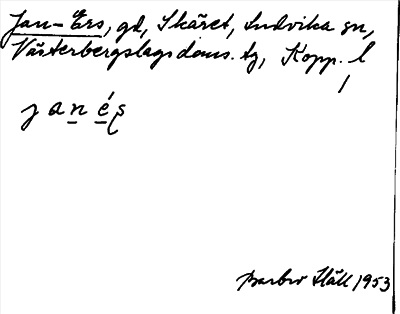 Jan-Ers, gd, Skäret, Ludvika sn,
Västerbergslags doms. tg, Kopp. l
j a n é s
Barbro Häll 1953